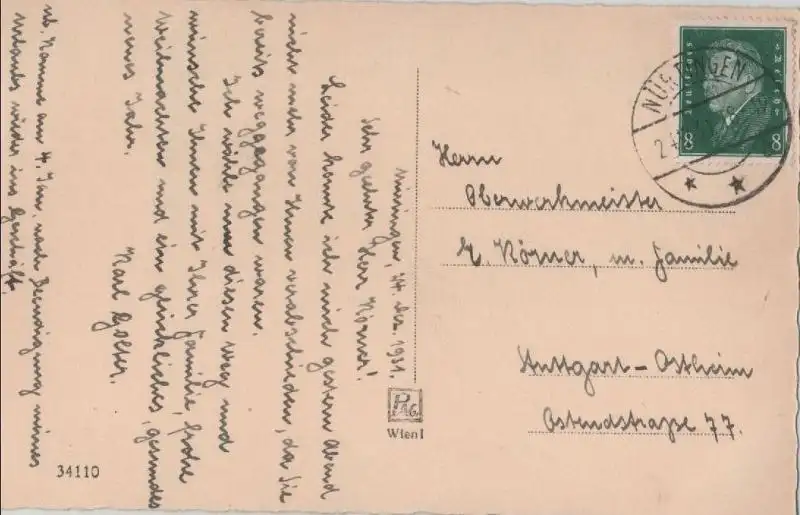 Nürtingen, 24. Dez. 1931.
Sehr geehrter Herr Körner!
Leider konnte ich mich gestern Abend
nicht mehr von Ihnen verabschieden, da Sie
bereits weggegangen waren.
Ich wähle nun diesen Weg und
wünsche Ihnen mit Ihrer Familie, frohe
Weihnachten und ein glückliches, gesundes
neues Jahr.
Karl
nb. Komme am 4. Jan. nach Beendigung meines
Urlaubs wieder ins Geschäft.
34110
PAG
Wien I
Deutsches Reich
8 8
NÜRTINGEN
Herrn
Oberwerkmeister
E. Körner, m. Familie
Stuttgart-Ostheim
Ostendstraße 77.